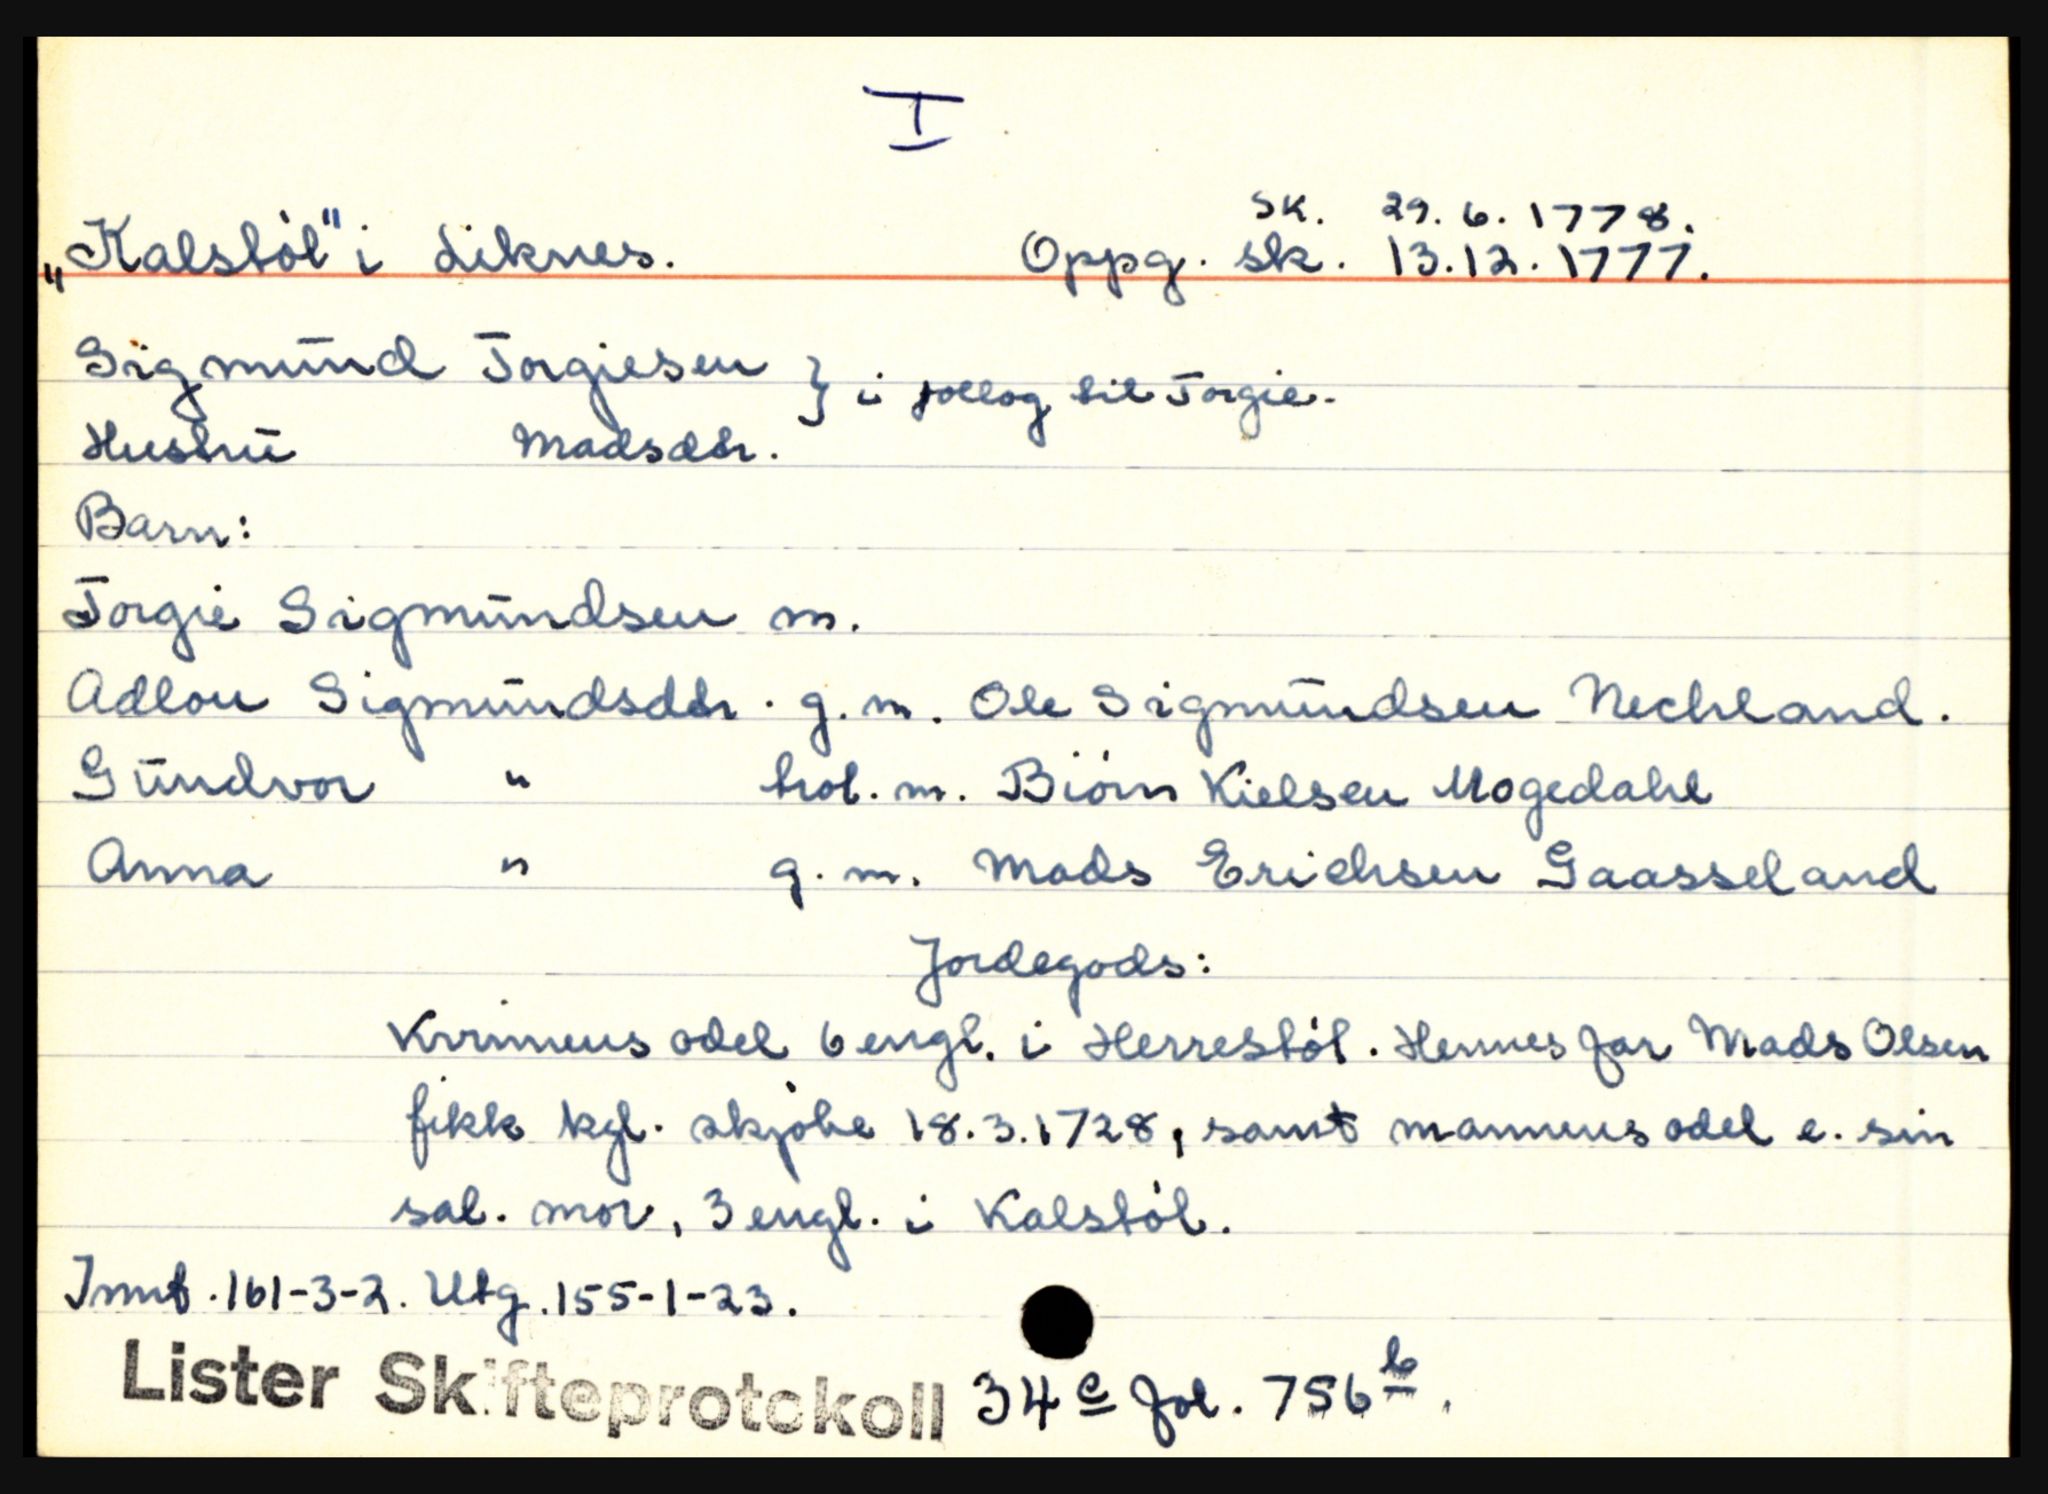 I
sk. 29.6.1778.
„Kalstøl" i Liknes. Oppg. sk. 13.12.1777.
Sigmund Torgiesen } i follog til Torgie.
Hustru Madsdtr.
Barn:
Torgie Sigmundsen m.
Adlou Sigmundsdtr. g.m. Ole Sigmundsen Nechland.
Gundvor " trol. m. Biørn Kielsen Mogedahl
Anna " g.m. Mads Erichsen Gaasseland
Jordegods:
Kvinnens odel 6 engl. i Herrestøl. Hennes far Mads Olsen
fikk kgl. skjøte 18.3.1728, samt mannens odel e. sin
sal. mor, 3 engl. i Kalstøl.
Innt. 161-3-2. Utg. 155-1-23.
Lister Skifteprotokoll 34 c fol. 756 b.